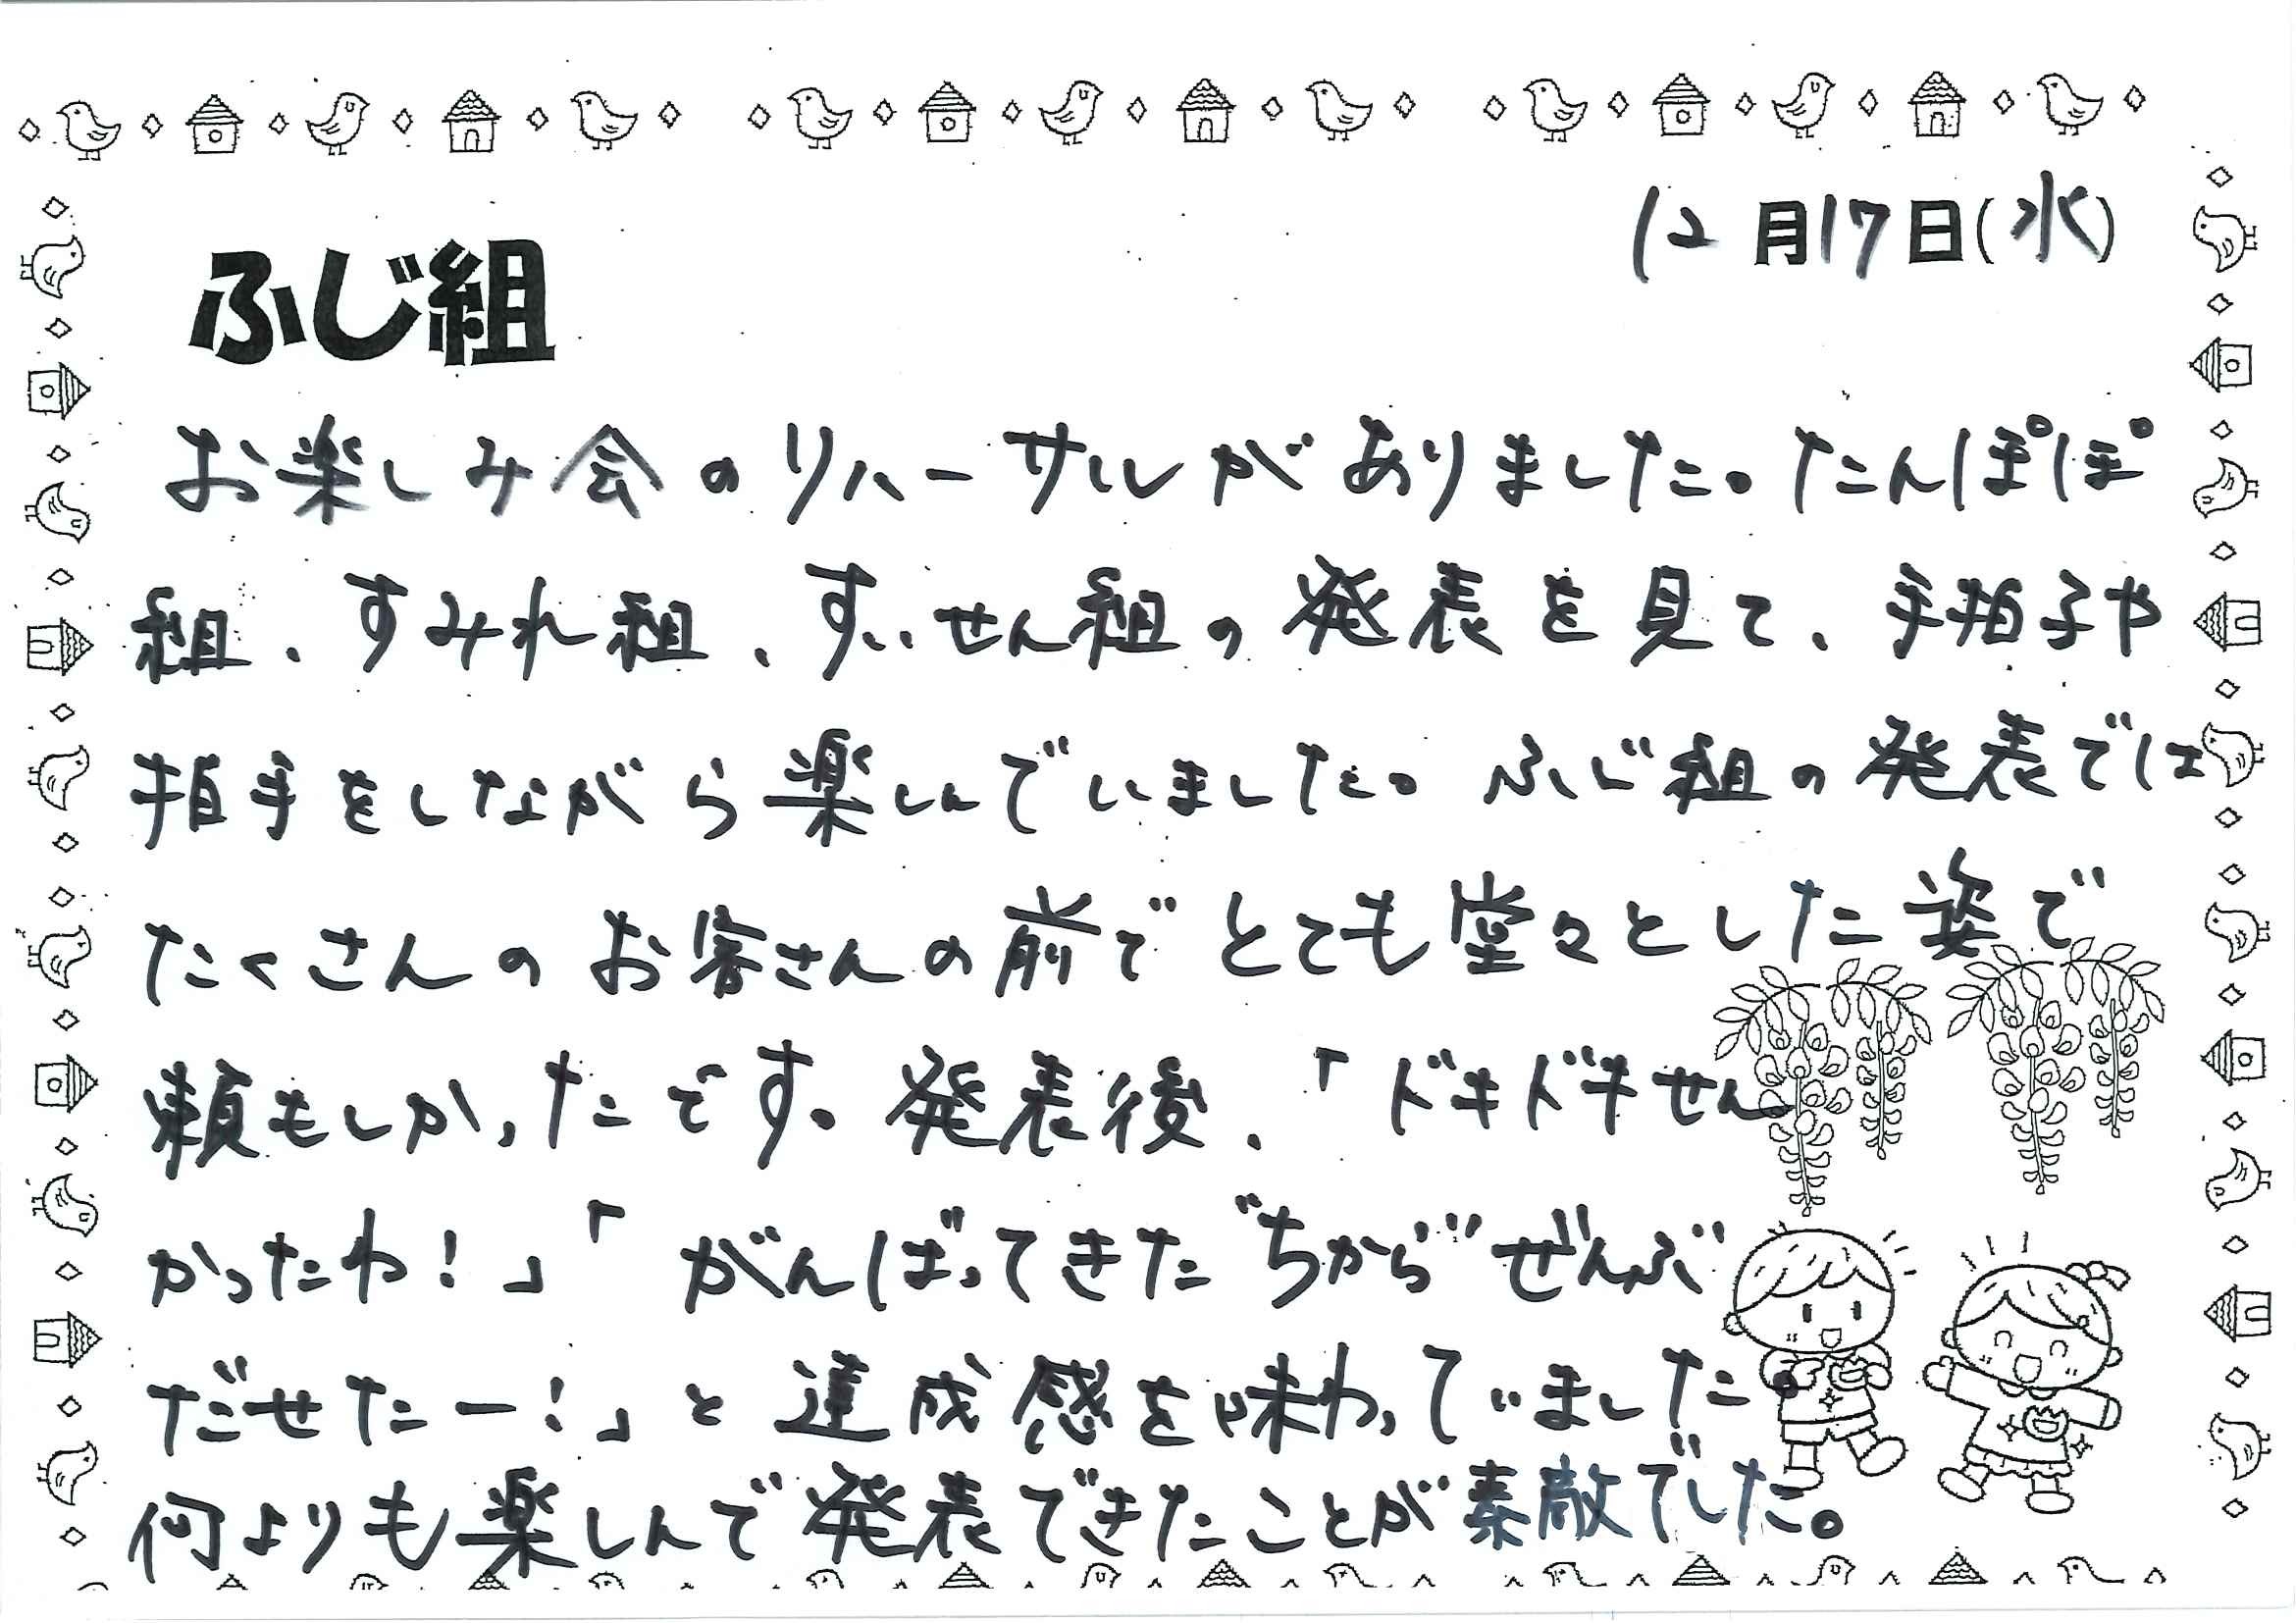 12月17日(水)
ふじ組
お楽しみ会のリハーサルがありました。たんぽぽ
組、すみれ組、すいせん組の発表を見て、手拍子や
拍手をしながら楽しんでいました。ふじ組の発表では
たくさんのお客さんの前でとても堂々とした姿で
頼もしかったです。発表後、「ドキドキせん
かったわ!」「がんばってきた"ちから"ぜんぶ
だせたー!」と達成感を味わっていました。
何よりも楽しんで発表できたことが素敵でした。